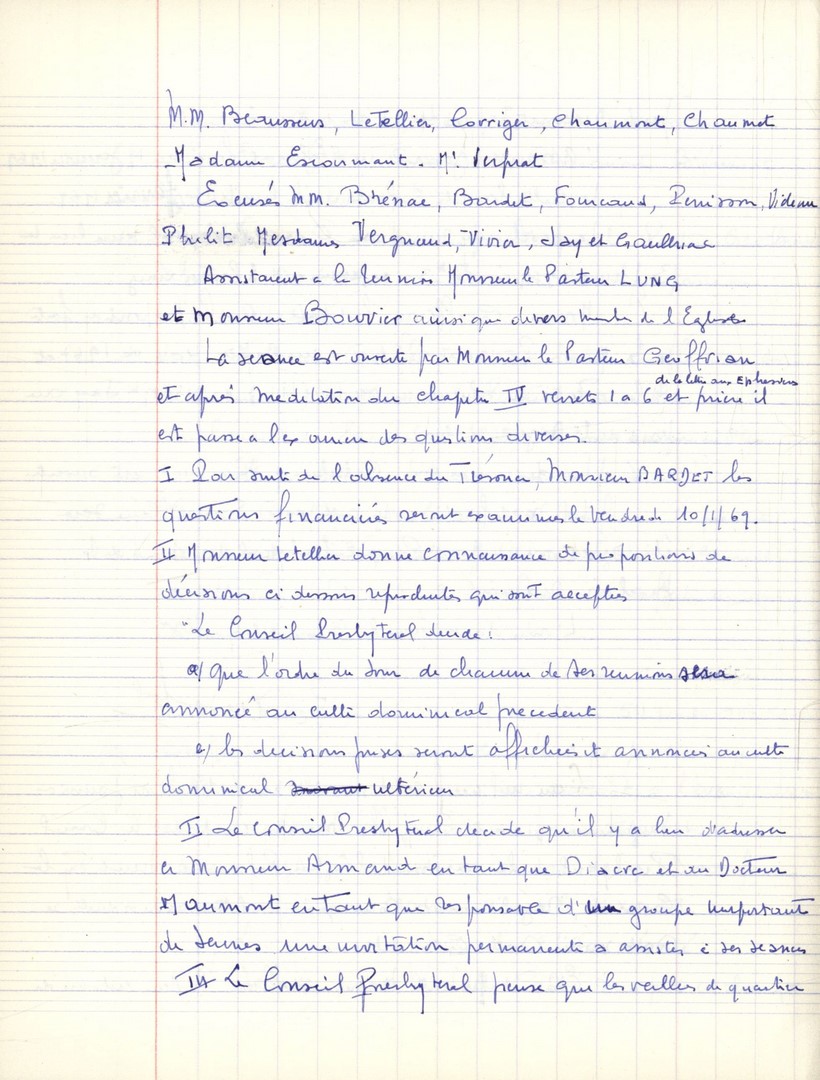 M.M. Beaussens, LeTellier, Corriger, Chaumont, Chaumet
Madame Escourmant. Mr Verprat
Excusés MM. Brénac, Bardet, Fourcaud, Denisson, Videau
Philit Mesdames Vergnaud, Vivier, Jay et Gaulhiac
Assistaient a la Reunion Monsieur le Pasteur LUNG
et Monsieur Bouvier ainsi que divers membre de l'Eglise
La seance est ouverte par Monsieur le Pasteur Geoffrian
de la lettre aux Ephesiens
et aprés meditation du chapitre IV versets 1 a 6 et priere il
est passe a l'examen des questions diverses.
I Par suite de l'absence du Trésorier, Monsieur BARDET les
questions financiéres seront examinees le Vendredi 10/1/69.
II Monsieur Letellier donne connaissance de propositions de
décisions ci dessous reproduites qui sont acceptées
"Le Conseil Presbyteral decide:
a) que l'ordre du Jour de chacune de ses reunions sera
annoncé au culte dominical precedent
les decisions prises seront affichées et annoncées au culte
dominical suivant ultérieur
II Le Conseil Presbyteral decide qu'il y a lieu d'adresser
a Monsieur Armand en tant que Diacre et au Docteur
Maumont en tant que responsable d'un groupe important
de Jeunes une invitation permanente a assister à ses seances
Le Conseil Presbyteral pense que les veillées de quartier